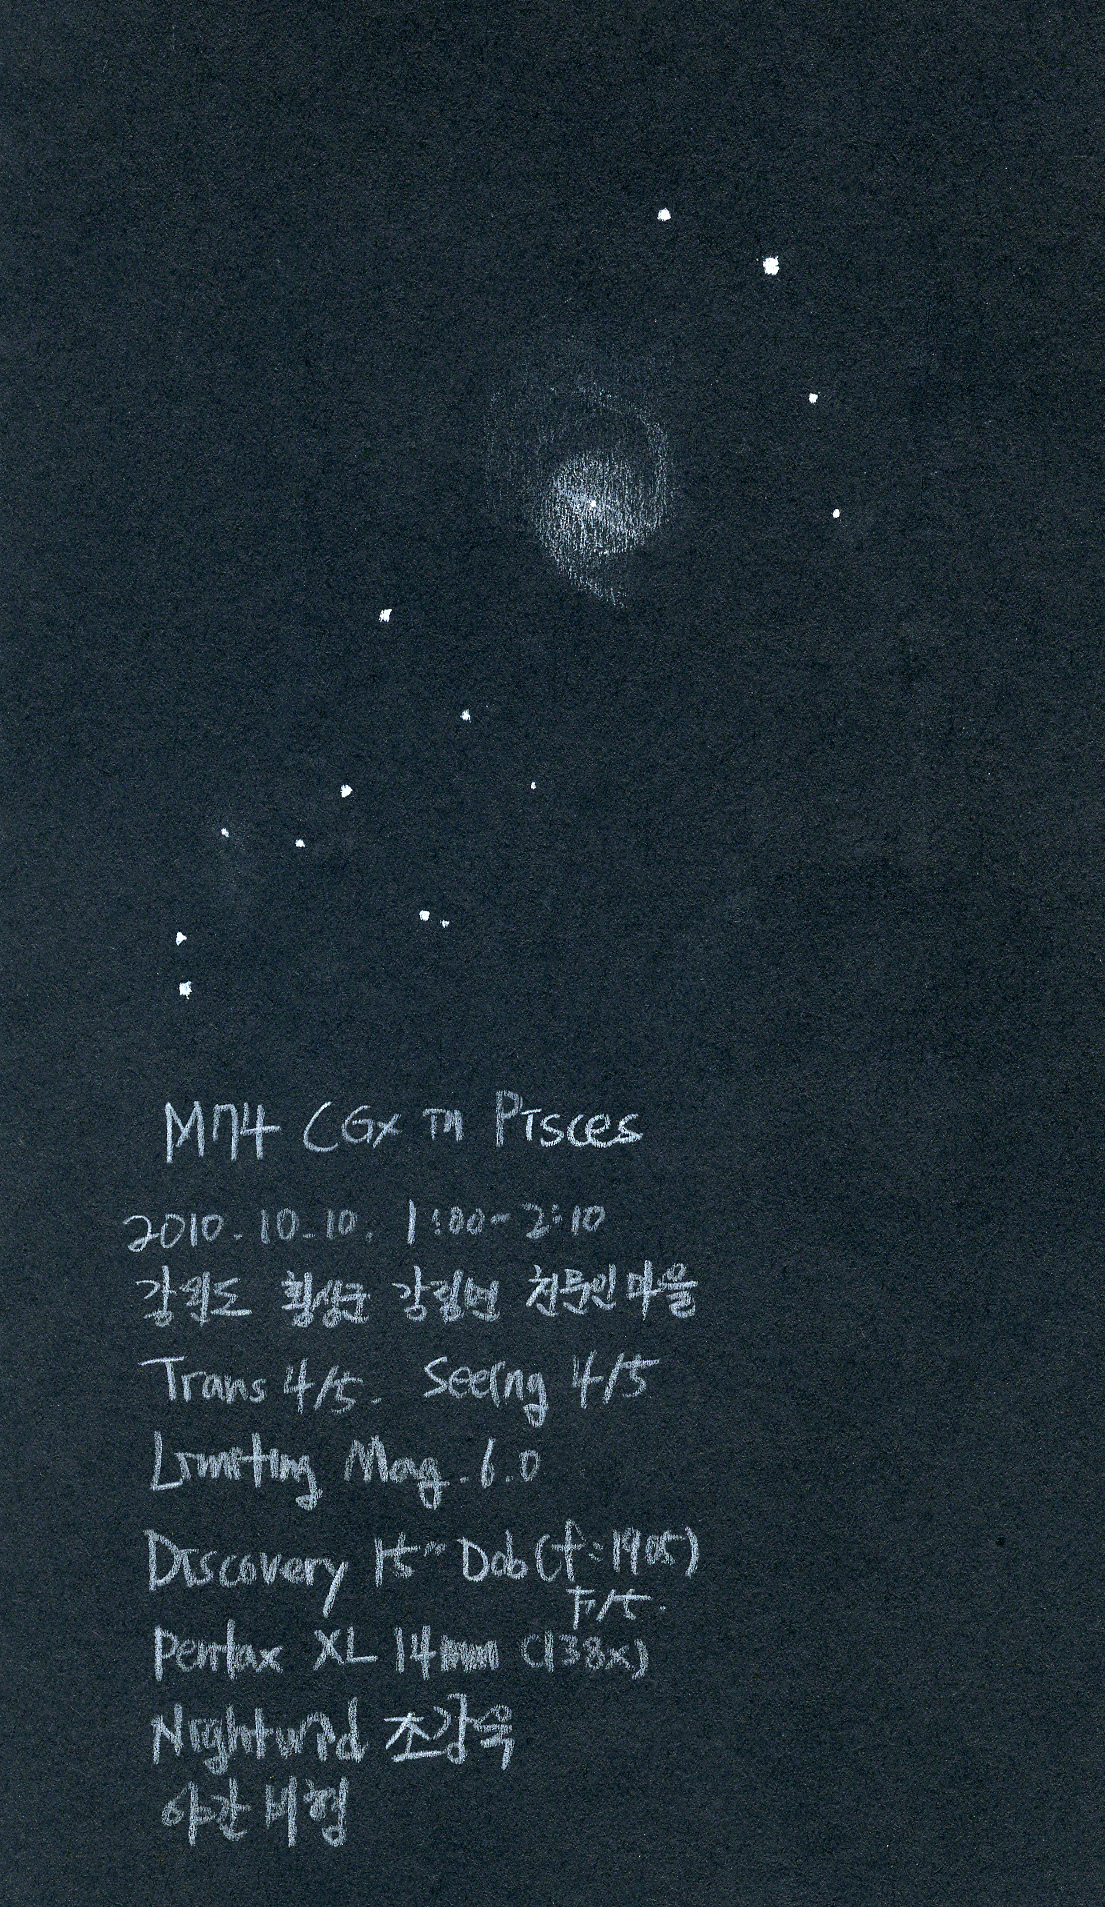 M74 (Gx in Pisces
2010. 10. 10. 1:00 - 2:10
강원도 횡성군 강림면 천문인마을
Trans 4/5. Seeing 4/5
Limiting Mag. 6.0
Discovery 15" Dob (f=1905)
F/5.
Pentax XL 14mm (138x)
Nightwid 조강욱
야간비행